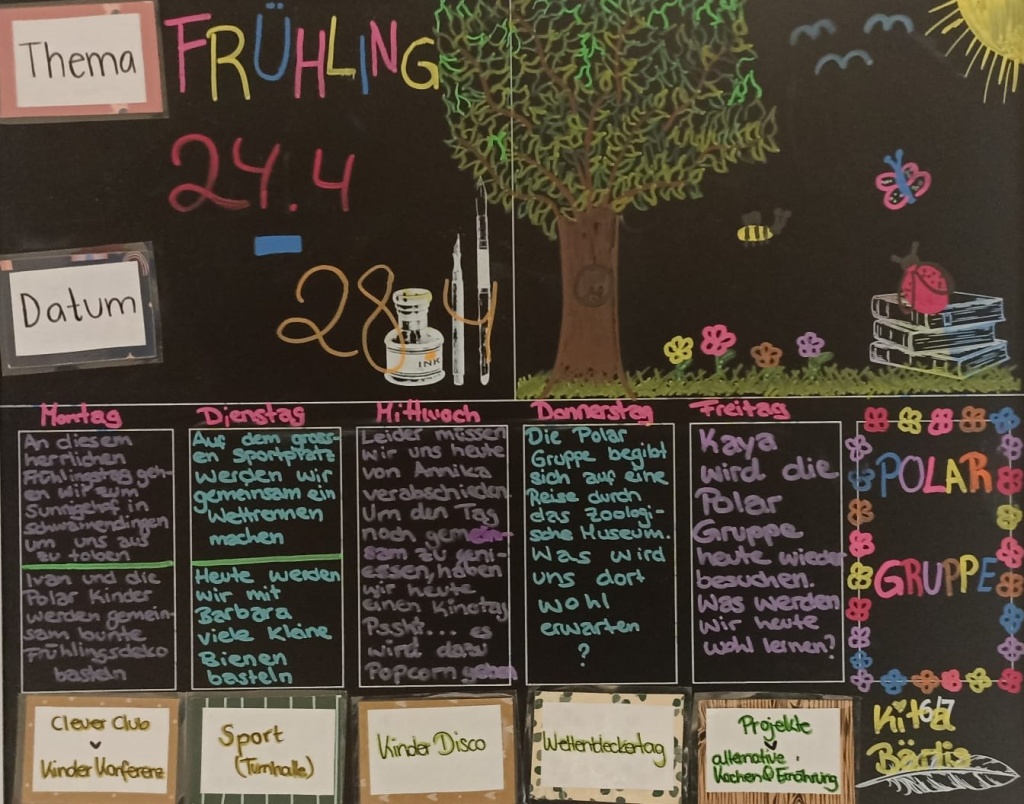 Thema
FRÜHLING
24.4
-
Datum
28.4
INK
Montag
An diesem
herrlichen
Frühlingstag geh-
en wir zum
Sunnighof in
Schwamendingen
um uns aus
zu toben
Ivan und die
Polar Kinder
werden gemein-
sam bunte
Frühlingsdeko
basteln
Dienstag
Auf dem gross-
en Sportplatz
werden wir
gemeinsam ein
Wettrennen
machen
Heute werden
wir mit
Barbara
viele kleine
Bienen
basteln
Mittwoch
Leider müssen
wir uns heute
von Annika
verabschieden.
Um den Tag
noch gemein-
sam zu geni-
essen, haben
wir heute
einen Kinotag
Pssht... es
wird dazu
Popcorn geben
Donnerstag
Die Polar
Gruppe begibt
sich auf eine
Reise durch
das zoologi-
sche Museum.
Was wird
uns dort
wohl
erwarten
?
Freitag
Kaya
wird die
Polar
Gruppe
heute wieder
besuchen.
Was werden
wir heute
wohl lernen?
POLAR
GRUPPE
Clever Club
Kinder Konferenz
Sport
(Turnhalle)
Kinder Disco
Weltentdeckertag
Projekte
alternative
Kochen & Ernährung
Kita
Bärlis
6/7